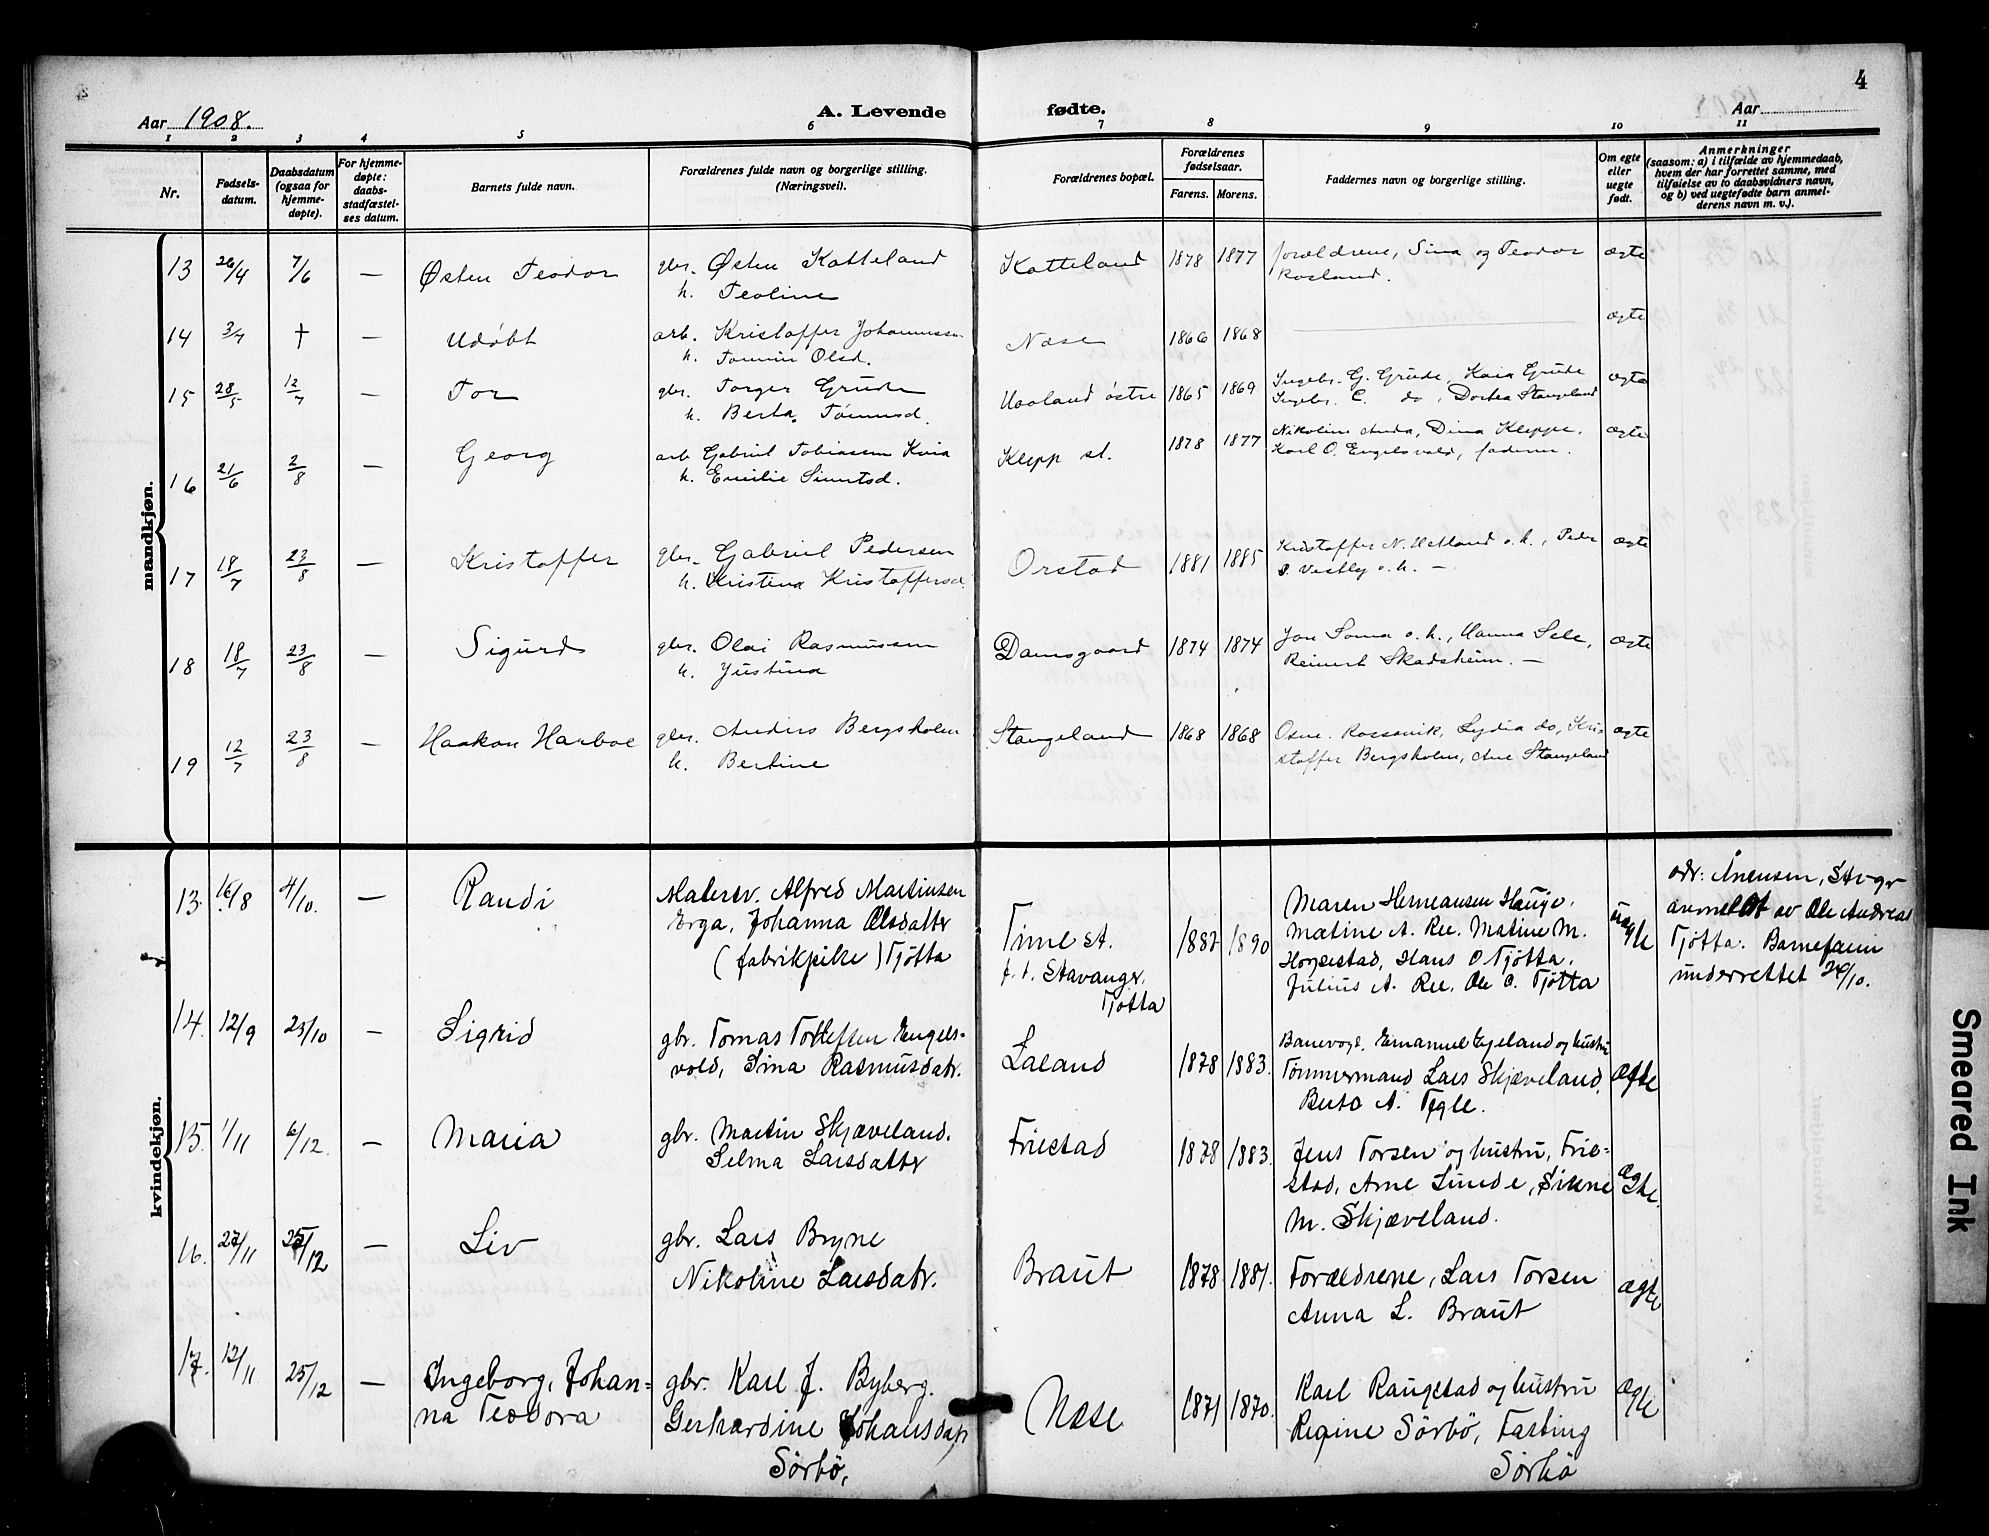 4
Aar 1908.
A. Levende fødte.
Aar
1 2 3 4 5 6 7 8 9 10 11
Nr.
Fødsels-
datum.
Daabsdatum
(ogsaa for
hjemme-
døpte).
For hjemme-
døpte:
daabs-
stadfæstel-
ses datum.
Barnets fulde navn.
Forældrenes fulde navn og borgerlige stilling.
(Næringsvei).
Forældrenes bopæl.
Forældrenes
fødselsaar.
Farens. Morens.
Faddernes navn og borgerlige stilling.
Om egte
eller
uegte
født.
Anmerkninger
(saasom: a) i tilfælde av hjemmedaab,
hvem der har forrettet samme, med
tilføielse av to daabsvidners navn,
og b) ved uegtefødte barn anmel-
derens navn m. v.).
mandkjøn.
13 26/4 7/6 — Østen Teodor gbr. Østen Katteland Katteland 1878 1877 forældrene, Sina og Teodor ægte
h. Teoline Rosland.
14 3/7 † — Udøbt arb. Kristoffer Johannessen Næse 1866 1868 ægte
h. Olsd.
15 28/5 12/7 — Tor gbr. Torger Grude østre 1865 1869 Ingebr. G. Grude, Kaia Grude ægte
h. Berta Tønnesd. Ingebr. C. do, Dortea Stangeland
16 21/6 2/8 — Georg arb. Gabriel Tobiassen Kvia Klepp st. 1878 1877 Nikoline Anda, Dina Kleppe, ægte
h. Emilie Simensd. Karl O. Engelsvold, faderen.
17 18/7 23/8 — Kristoffer gbr. Gabriel Pedersen Orstad 1881 1885 Kristoffer N. Uetland o. h., Peder ægte
h. Kristina Kristoffersd. S. Vestly o. h. —
18 18/7 23/8 — Sigurd gbr. Olai Rasmussen Damsgaard 1874 1874 Jon Soma o. h., Hanna Sele, ægte
h. Justina Reinert Skadsheim. —
19 12/7 23/8 — Haakon Harboe gbr. Anders Bergsholm Stangeland 1868 1868 Rossavik, Lydia do, Kri- ægte
h. Bertine stoffer Bergsholm, Ane Stangeland
kvindekjøn.
13. 16/8 4/10. — Randi Malersv. Alfred Martinsen
Erga, Johanna Olsdatter
(fabrikpike) Tjøtta
Time st.
f. t. Stavanger,
Tjøtta
1882 1890
Maren Hermansen Hauge,
Matine A. Ree. Matine M.
Horpestad, Hans O Tjøtta,
Julius A. Ree, Ole O. Tjøtta
uægte
adr: Arensen, Stvgr
anmeldt av Ole Andreas
Tjøtta. Barnefaren
underrettet 24/10.
14. 12/9 25/10 — Sigrid gbr. Tomas Tollefsen Engels-
vold, Sina Rasmusdatr.
Laland 1878 1883.
Banevogt. Emanuel Egeland og hustru
Tømmermand Lars Skjæveland,
Berta A. Tegle.
ægte
15. 1/11 6/12. — Maria gbr. Martin Skjæveland.
Selma Larsdatter
Friestad 1878 1883.
Jens Torsen og hustru, Frie-
stad, Arne Linde, Sirine
M. Skjæveland.
ægte.
16. 23/11 25/12 — Liv gbr. Lars Bryne
Nikoline Larsdatr.
Braut 1878 1881.
Forældrene, Lars Torsen
Anna L. Braut
ægte
17. 12/11 25/12 — Ingeborg, Johan-
na Teodora
gbr. Karl J. Byberg.
Gerhardine Johansdatr
Sørbø,
Næse 1871 1870.
Karl Raugstad og hustru
Regine Sørbø, Fasting
Sørbø
ægte
Smeared Ink